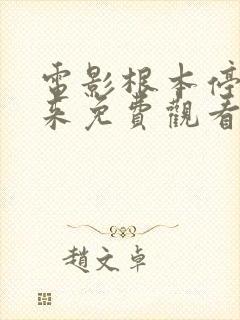 電影根本停
来免費觀看
趙文卓